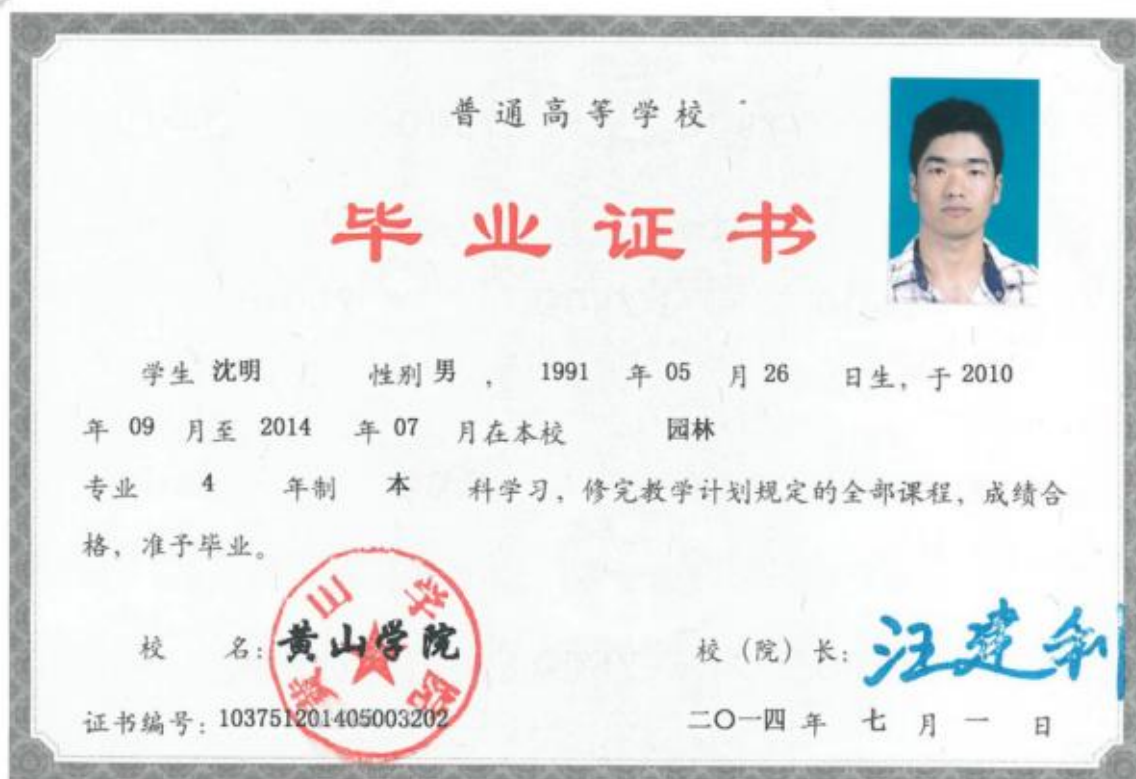 普通高等学校
毕业证书
学生 沈明 性别 男 ， 1991 年 05 月 26 日生，于 2010
年 09 月至 2014 年 07 月在本校 园林
专业 4 年制 本 科学习，修完教学计划规定的全部课程，成绩合
格，准予毕业。
校 名：黄山学院
黄山学院
校（院）长：汪建利
证书编号：103751201405003202
二〇一四 年 七 月 一 日